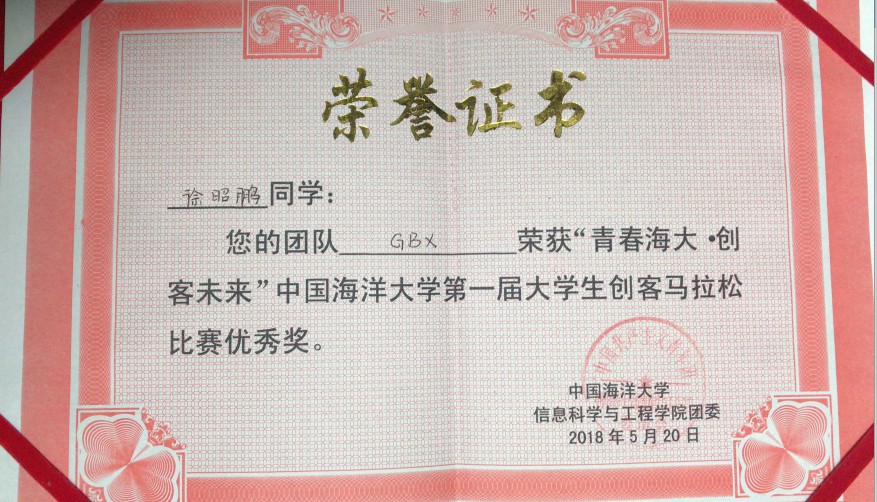 荣誉证书
徐昭鹏同学：
您的团队 GBX 荣获“青春海大·创
客未来”中国海洋大学第一届大学生创客马拉松
比赛优秀奖。
中国海洋大学
信息科学与工程学院团委
2018年5月20日